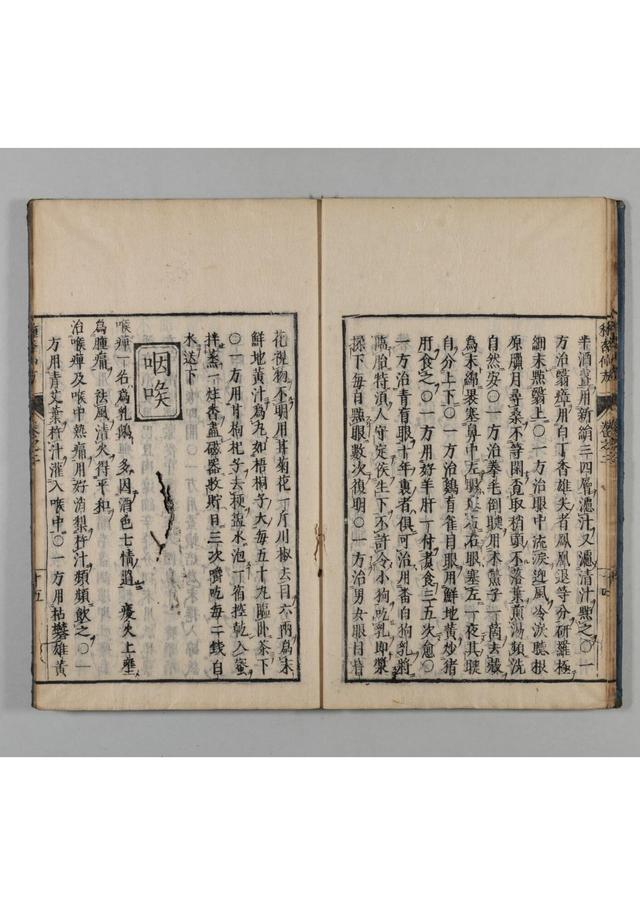 半酒盞用新絹三四層濾汁又濾清汁㸃之〇一
方治翳瘴用白丁香雄夫者鳳凰退等分研羅極
細末㸃翳上〇一方治眼中流淚迎風冷淚䏂根
原臘月尋桑不等開𠀋取稍頭不落葉煎湯頻洗
自然安〇一方治拳毛倒睫用木鱉子一箇去殼
為末綿裹塞鼻中左眼塞右右眼塞左一夜其睫
自分上下〇一方治鷄盲雀目眼用鮮地黄炒猪
肝食之〇一方用好羊肝一付煮食三五次愈〇
一方治青盲眼十年裏者俱可治用畨白狗乳將
臨胎特湏人守定侯生下不許令小狗吃乳即漿
搽下毎日㸃眼數次復明〇一方治男女眼目昏
花視物不明用甘菊花一斤川椒去目六兩為末
鮮地黄汁為丸如梧桐子大毎五十九臨卧茶下
〇一方用甘枸杞子去梗盬水泡一宿控乾入蜜
拌蒸一炷香盡磁器收貯日三次嚼吃毎二錢白
水送下
咽喉
喉痺一名為乳鵝多因酒色七情過痰火上壅
為腫痛袪風清火得平和
治喉痺及喉中熱痛用好消梨杵汁頻頻飲之〇一
方用青艾葉杵汁灌入喉中〇一方用枯礬雄黄
十五